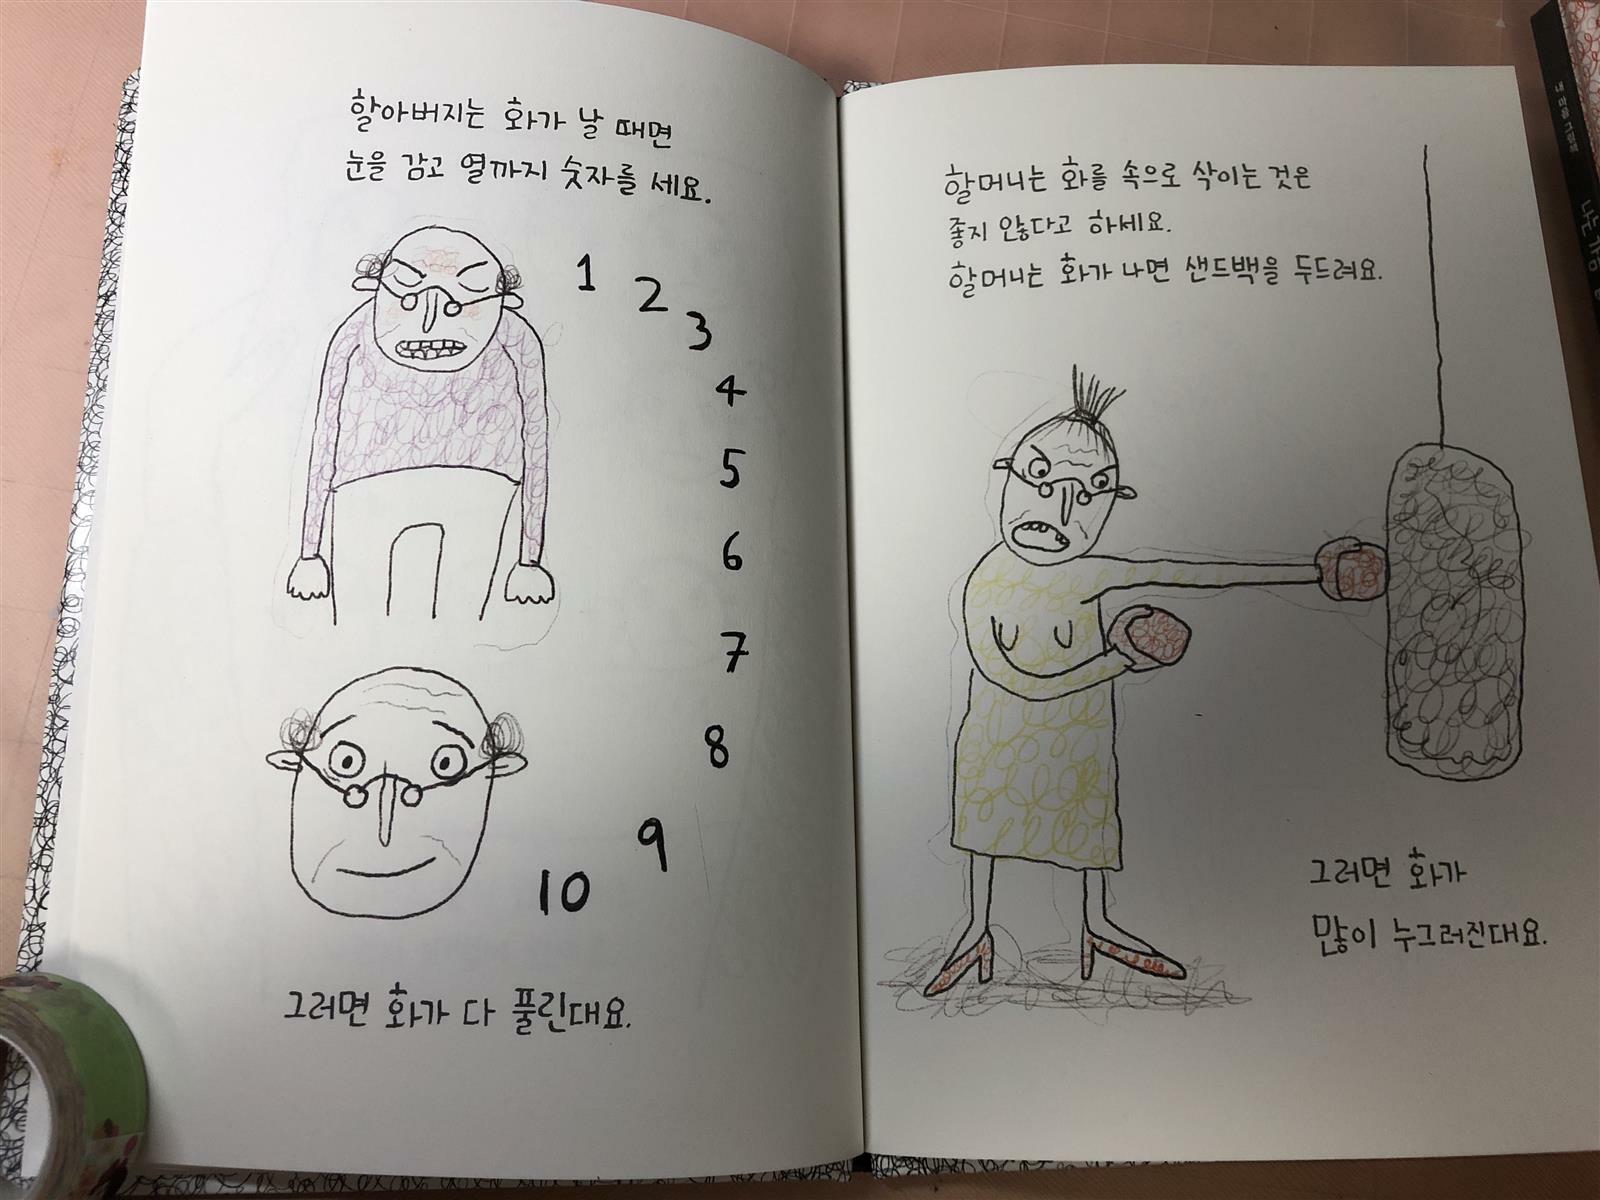 할아버지는 화가 날 때면
눈을 감고 열까지 숫자를 세요.
1
2
3
4
5
6
7
8
9
10
그러면 화가 다 풀린대요.
할머니는 화를 속으로 삭이는 것은
좋지 않다고 하세요.
할머니는 화가 나면 샌드백을 두드려요.
그러면 화가
많이 누그러진대요.
내 마음 그림책
나는